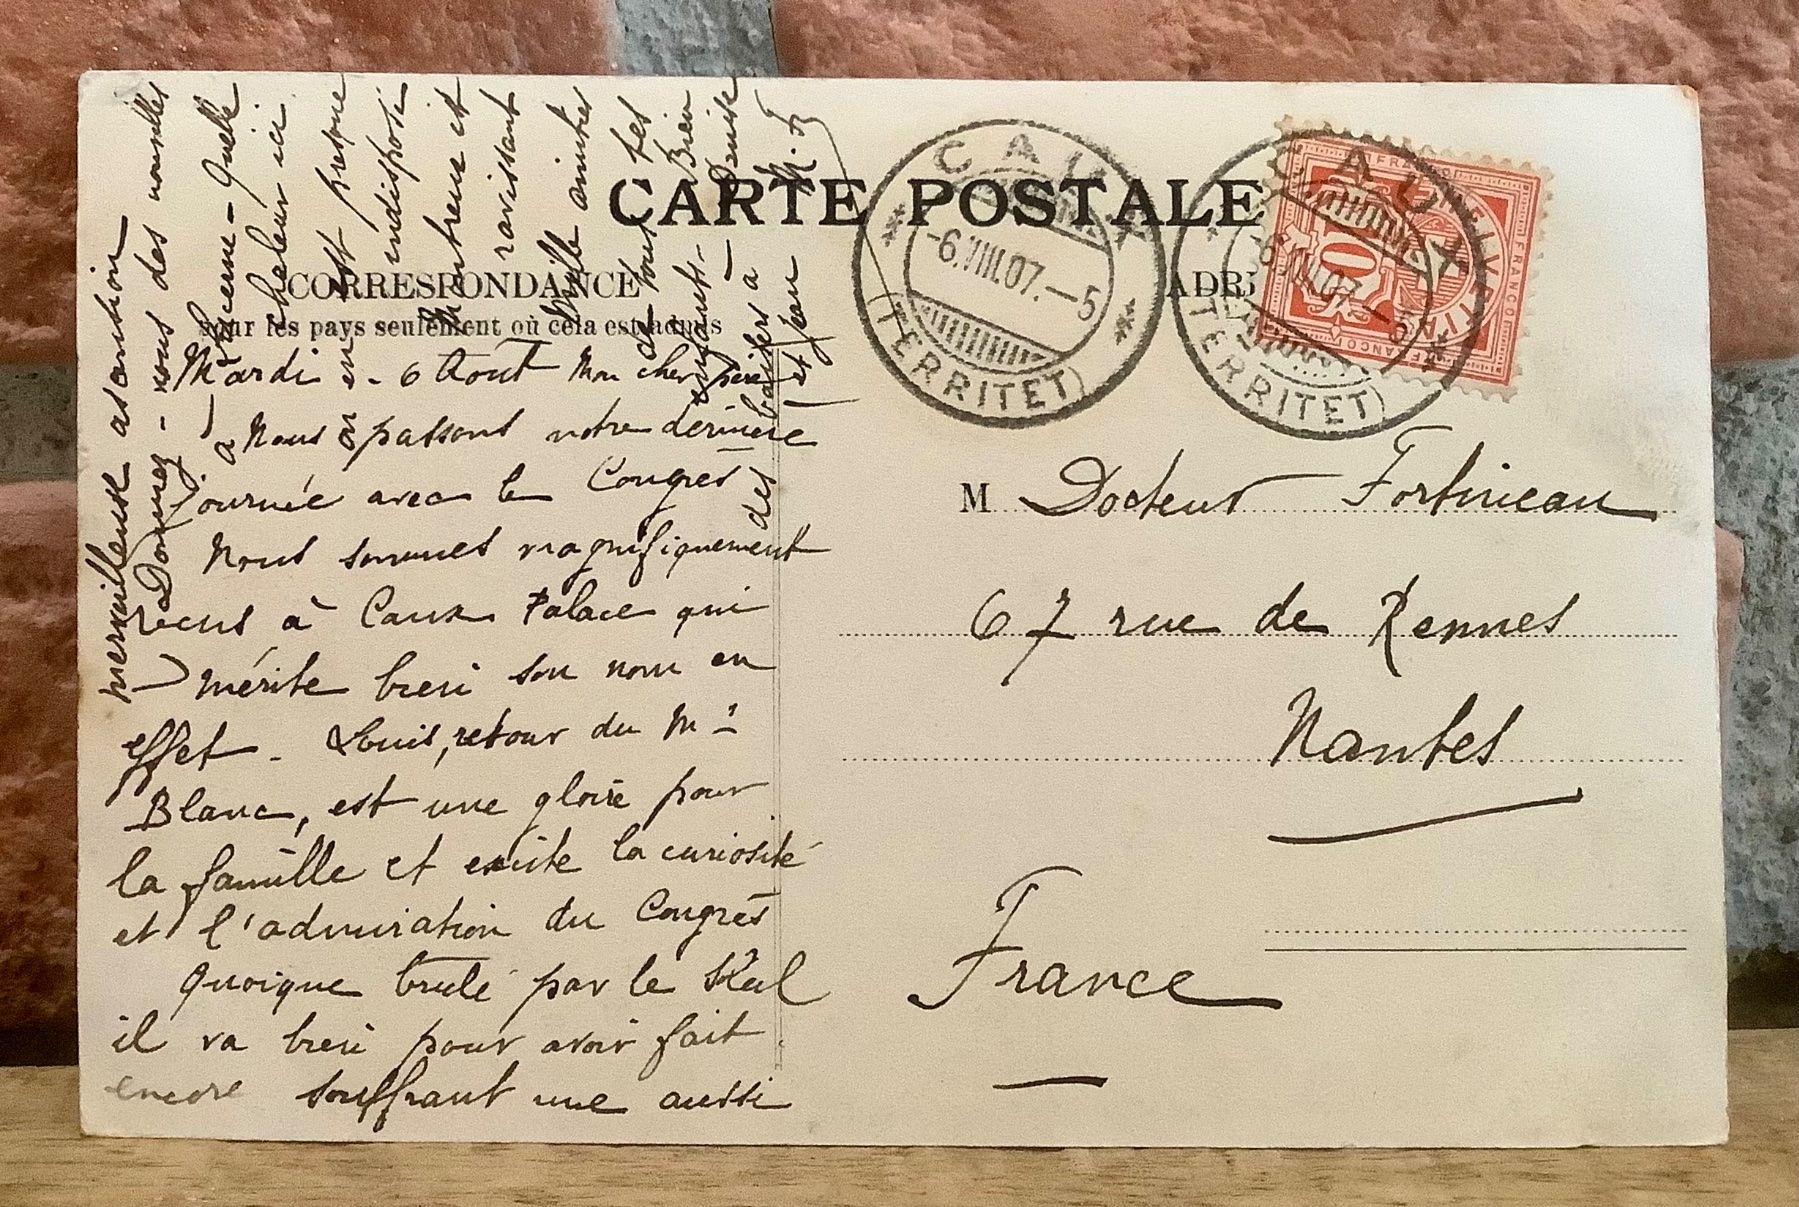 CARTE POSTALE
CORRESPONDANCE
pour les pays seulement où cela est admis
ADR
Mardi - 6 Aout Mon cher père
Nous passons notre dernière
journée avec le Congrès
Nous sommes magnifiquement
recus à Caux Palace qui
mérite bien son nom en
effet - Louis, retour du Mt
Blanc, est une gloire pour
la famille et excite la curiosité
et l'admiration du Congrès
Quoique brulé par le
il va bien pour avoir fait
encore souffrant une aussi
merveilleuse ascention
Donnez-nous des nouvelles
à Lucerne - Quelle
chaleur ici
on en est presque
indisposé
Montreux est
ravissant
Mille amitiés
de tous tes
enfants - Bien
des baisers à Denise
et Jean M. F
CAUX
-6.VIII.07.-5
(TERRITET)
CAUX
-6.VIII.07.-5
(TERRITET)
FRANCO
HELVETIA
10
FRANCO
M Docteur Fortineau
67 rue de Rennes
Nantes
France